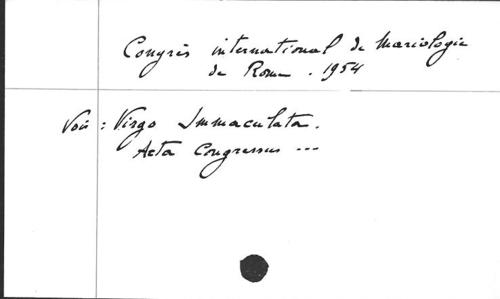 Congrès international de Mariologie
de Rome. 1954
Voir : Virgo Immaculata.
Acta Congressus ---